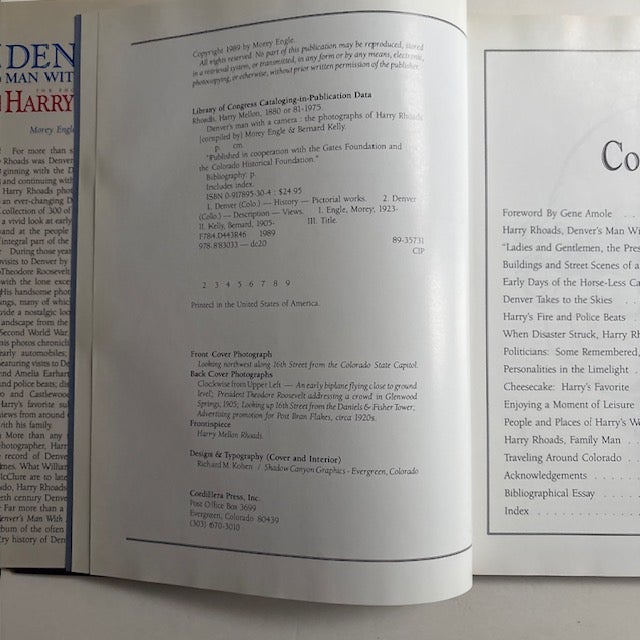 DEN
MAN WIT
HARRY
Morey Engle
For more than s
Rhoads was Denver
ginning with the D
and continuing with
Harry Rhoads phot
an ever-changing D
collection of 300 of
a vivid look at early
and at the people
integral part of the
During those years
visits to Denver by
Theodore Roosevelt
with the lone exce
His handsome phot
ings, many of which
vide a nostalgic loo
andscape from the
Second World War.
his photos chronicle
early automobiles;
eaturing visits to De
nd Amelia Earhart
nd police beats; dis
o and Castlewood
Harry's favorite sub
views from around
with his family.
More than any
photographer, Harr
record of Denve
imes. What William
McClure are to late
ado, Harry Rhoads
eth century Denver
Far more than a
Denver's Man With
lbum of the often
try history of Den
Copyright 1989 by Morey Engle.
All rights reserved. No part of this publication may be reproduced, stored
in a retrieval system, or transmitted, in any form or by any means, electronic,
photocopying, or otherwise, without prior written permission of the publisher.
Library of Congress Cataloging-in-Publication Data
Rhoads, Harry Mellon, 1880 or 81-1975.
Denver's man with a camera : the photographs of Harry Rhoads
[compiled by] Morey Engle & Bernard Kelly.
p. cm.
"Published in cooperation with the Gates Foundation and
the Colorado Historical Foundation."
Bibliography: p.
Includes index.
ISBN 0-917895-30-4 : $24.95
1. Denver (Colo.) — History — Pictorial works. 2. Denver
(Colo.) — Description — Views. I. Engle, Morey, 1923-
II. Kelly, Bernard, 1905- III. Title.
F784.D443R46 1989
978-8'83033 — dc20 89-35731
CIP
2 3 4 5 6 7 8 9
Printed in the United States of America.
Front Cover Photograph
Looking northwest along 16th Street from the Colorado State Capitol.
Back Cover Photographs
Clockwise from Upper Left — An early biplane flying close to ground
level; President Theodore Roosevelt addressing a crowd in Glenwood
Springs, 1905; Looking up 16th Street from the Daniels & Fisher Tower;
Advertising promotion for Post Bran Flakes, circa 1920s.
Frontispiece
Harry Mellon Rhoads.
Design & Typography (Cover and Interior)
Richard M. Kohen / Shadow Canyon Graphics - Evergreen, Colorado
Cordillera Press, Inc.
Post Office Box 3699
Evergreen, Colorado 80439
(303) 670-3010
Co
Foreword By Gene Amole . .
Harry Rhoads, Denver's Man Wi
"Ladies and Gentlemen, the Pres
Buildings and Street Scenes of a
Early Days of the Horse-Less Ca
Denver Takes to the Skies . .
Harry's Fire and Police Beats . .
When Disaster Struck, Harry Rh
Politicians: Some Remembered,
Personalities in the Limelight .
Cheesecake: Harry's Favorite
Enjoying a Moment of Leisure
People and Places of Harry's We
Harry Rhoads, Family Man .
Traveling Around Colorado . .
Acknowledgements . . . .
Bibliographical Essay . . . .
Index . . . . . . . . .